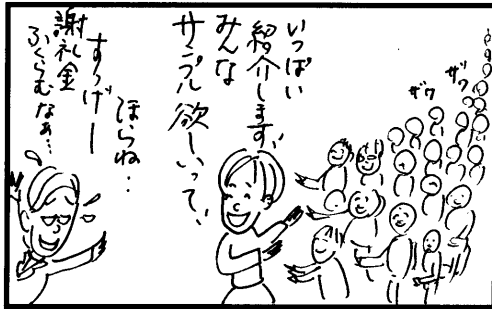 ザワ
ザワ
いっぱい
紹介します、
みんな
サンプル欲しいって、
ほらね‥
すっげー
謝礼金
ふくらむなぁ…